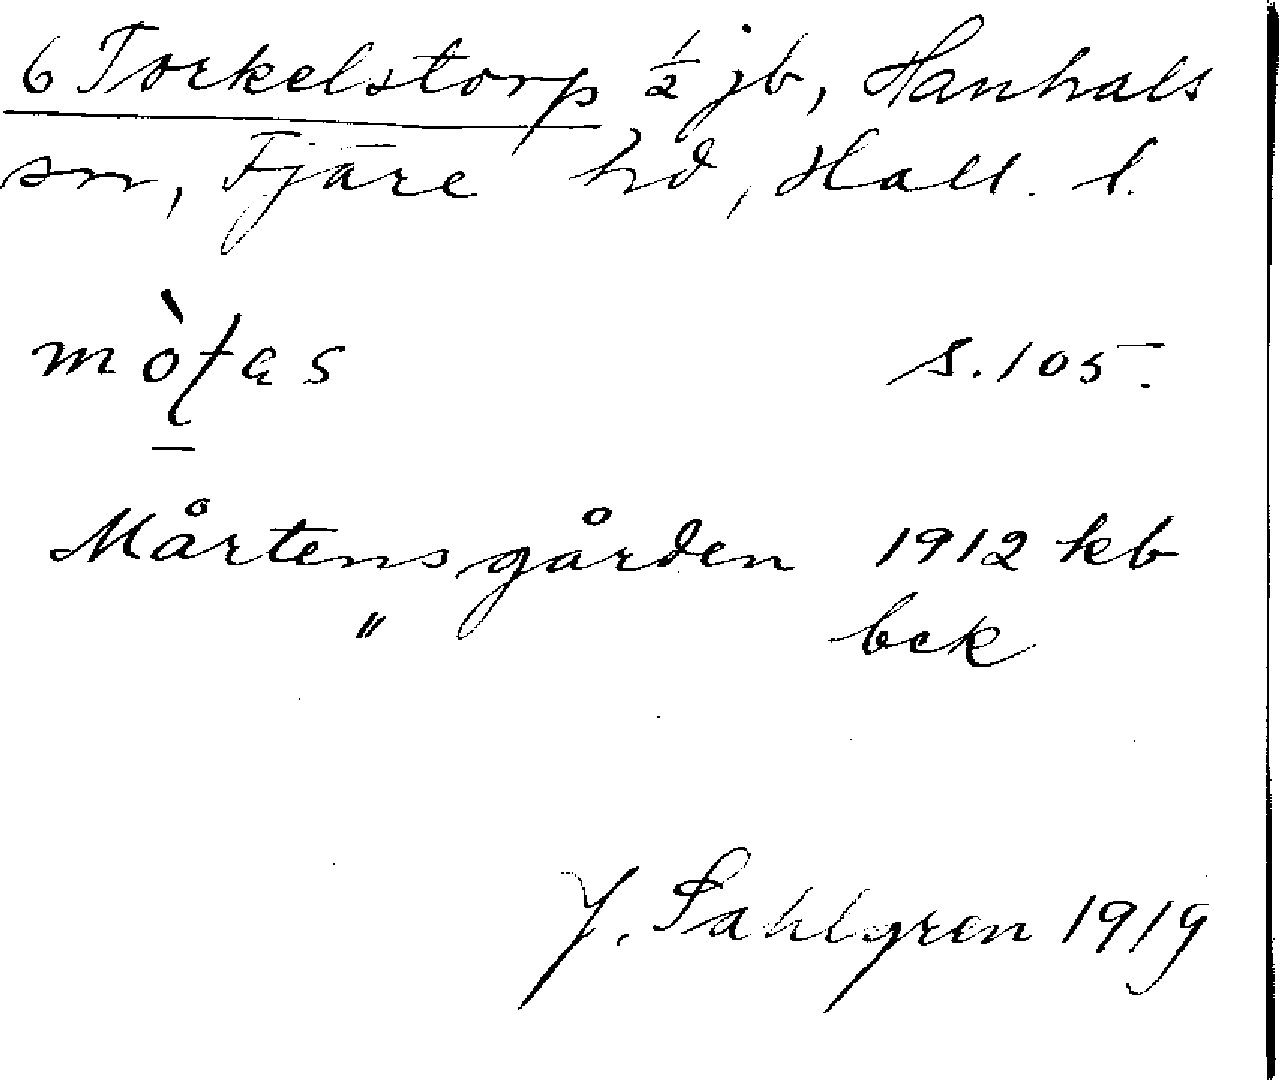 6 Torkelstorp ½ jb, Hanhals
sn, Fjäre hd, Hall. l.
S. 105.
Mårtensgården 1912 kb
" bck
J. Sahlgren 1919